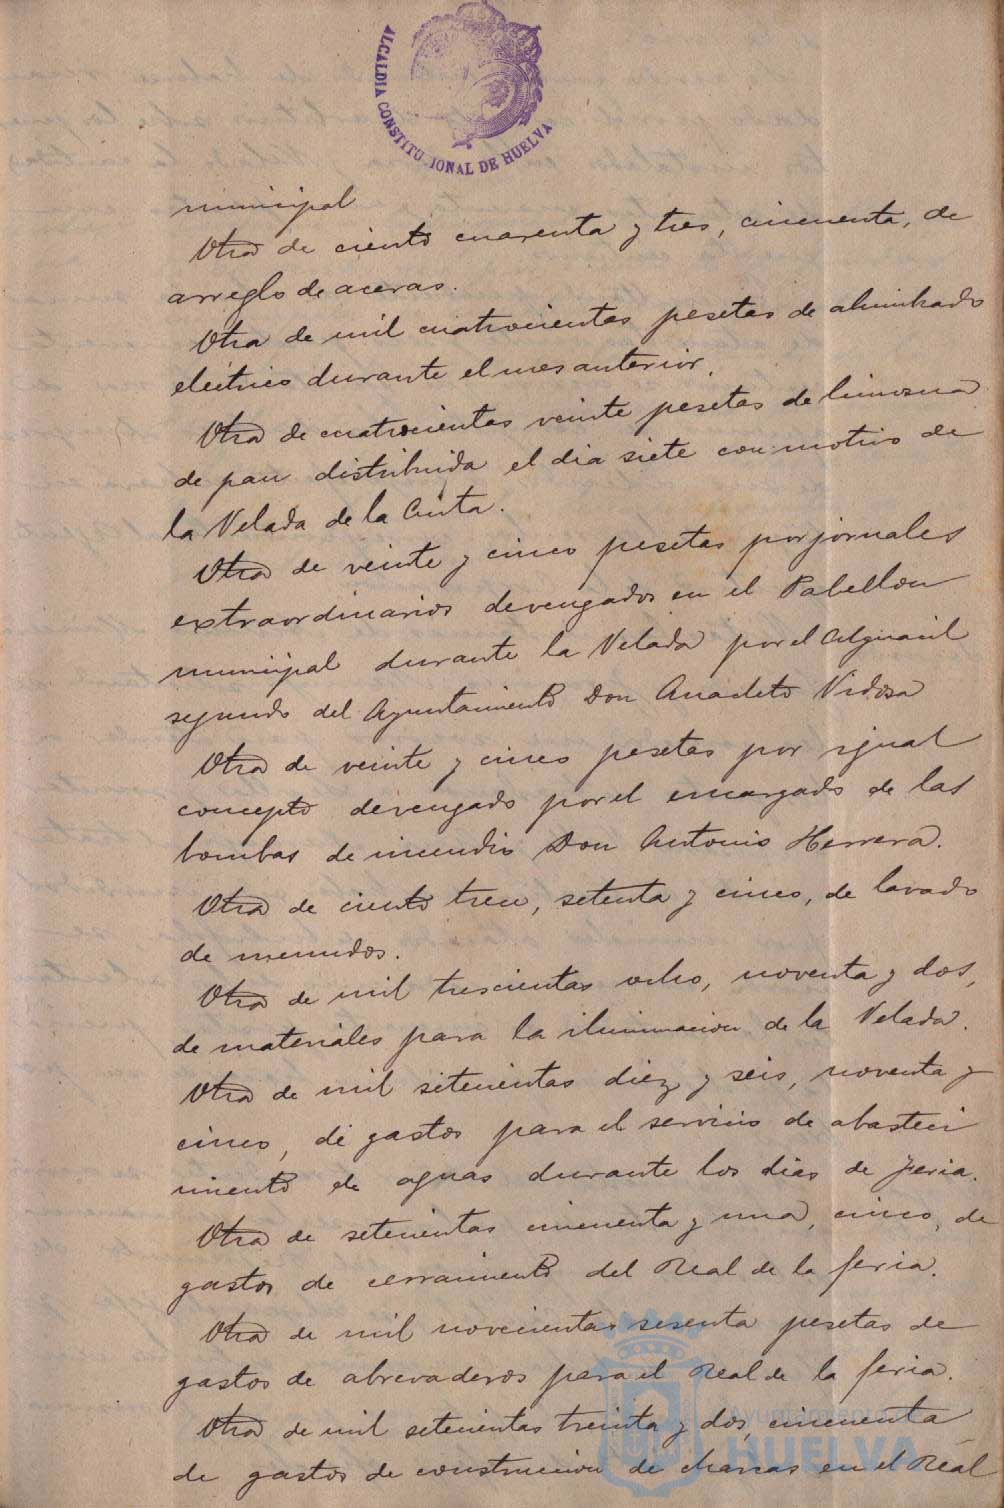 ALCALDIA CONSTITUCIONAL DE HUELVA
municipal
Otra de ciento cuarenta y tres, cincuenta, de
arreglo de aceras.
Otra de mil cuatrocientas pesetas de alumbrado
eléctrico durante el mes anterior.
Otra de cuatrocientas veinte pesetas de limosna
de pan distribuida el dia siete con motivo de
la Velada de la Cinta.
Otra de veinte y cinco pesetas por jornales
extraordinarios devengados en el Pabellon
municipal durante la Velada por el Alguacil
segundo del Ayuntamiento Don Anacleto Vidosa
Otra de veinte y cinco pesetas por igual
concepto devengado por el encargado de las
bombas de incendio Don Antonio Herrera.
Otra de ciento trece, setenta y cinco, de lavado
de menudos.
Otra de mil trescientas ocho, noventa y dos,
de materiales para la iluminacion de la Velada.
Otra de mil setecientas diez y seis, noventa y
cinco, de gastos para el servicio de abasteci
miento de aguas durante los dias de feria.
Otra de setecientas cincuenta y una, cinco, de
gastos de cerramiento del Real de la feria.
Otra de mil novecientas sesenta pesetas de
gastos de abrevaderos para el Real de la feria.
Otra de mil setecientas treinta y dos, cincuenta
de gastos de construccion de charcas en el Real
Ayuntamiento
HUELVA